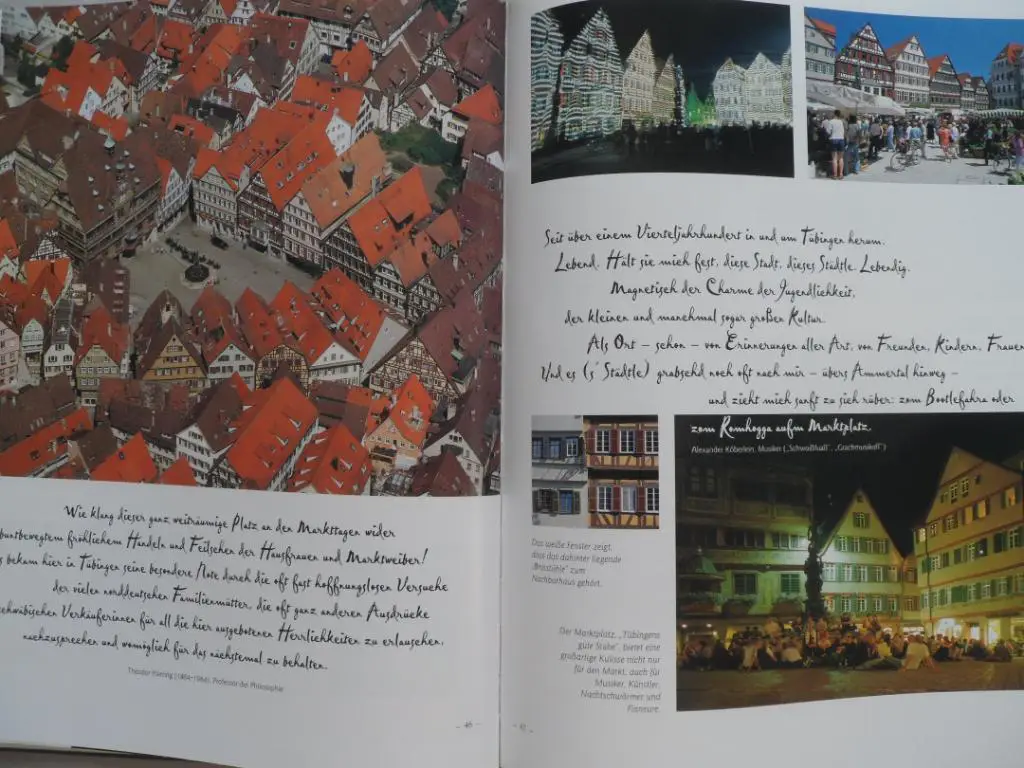 Wie klang dieser ganz weiträumige Platz an den Markttagen wider
buntbewegtem fröhlichem Handeln und Feilschen der Hausfrauen und Marktweiber!
bekam hier in Tübingen seine besondere Note durch die oft fast hoffnungslosen Versuche
der vielen norddeutschen Familienmütter, die oft ganz anderen Ausdrücke
schwäbischen Verkäuferinnen für all die hier ausgebotenen Herrlichkeiten zu erlauschen,
nachzusprechen und womöglich für das nächstemal zu behalten.
Professor der Philosophie
46
Seit über einem Vierteljahrhundert in und um Tübingen herum.
Lebend. Hält sie mich fest, diese Stadt, dieses Städtle. Lebendig.
Magnetisch der Charme der Jugendlichkeit,
der kleinen und manchmal sogar großen Kultur.
Als Ort – schon – von Erinnerungen aller Art, von Freunden, Kindern, Frauen
Und es (s' Städtle) grabschd noch oft nach mir – übers Ammertal hinweg –
und zieht mich sanft zu sich rüber: zom Bootlefahra oder
zom Romhogga aufm Marktplatz.
Alexander Köberlein, Musiker („Schwoißfuaß", „Grachmusikoff")
Das weiße Fenster zeigt,
dass das dahinter liegende
„Brautstüble" zum
Nachbarhaus gehört.
Der Marktplatz, „Tübingens
gute Stube", bietet eine
großartige Kulisse nicht nur
für den Markt, auch für
Musiker, Künstler,
Nachtschwärmer und
Flaneure.